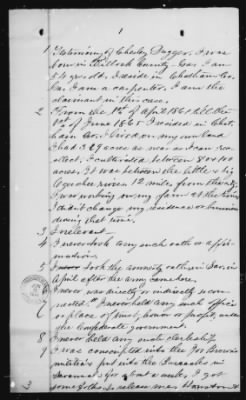 1
1 Testimony of Charley Dugger. I was
born in Bulloch County - Ga. I am
54 yrs old. I reside in Chatham Co.
Ga. I am a carpenter. I am the
claimant in this case.
2 From the 1st of April 1861 till the
1st of June 1865 I resided in Chat-
ham Co. I lived on my own land
I had 329 acres as near as I can rec-
ollect. I cultivated between 80 & 100
acres. It was between the little & big
Ogeechee river 12 miles from the city.
I was working on my farm all the time
I didn't change my residence or business
during that time.
3 Irrelevant -
4 I never took any such oath or affir-
mation
I took the amnesty oath in Sav. in
April after the army came here.
I never was directly or indirectly con-
nected &c. I never held any such office
or place of trust, honor or profit, under
the Confederate government.
8 I never held any such
9 I was conscripted into the Joe Brown
militia & put into the
Savannah for about a week, I got
some folks to release me
3